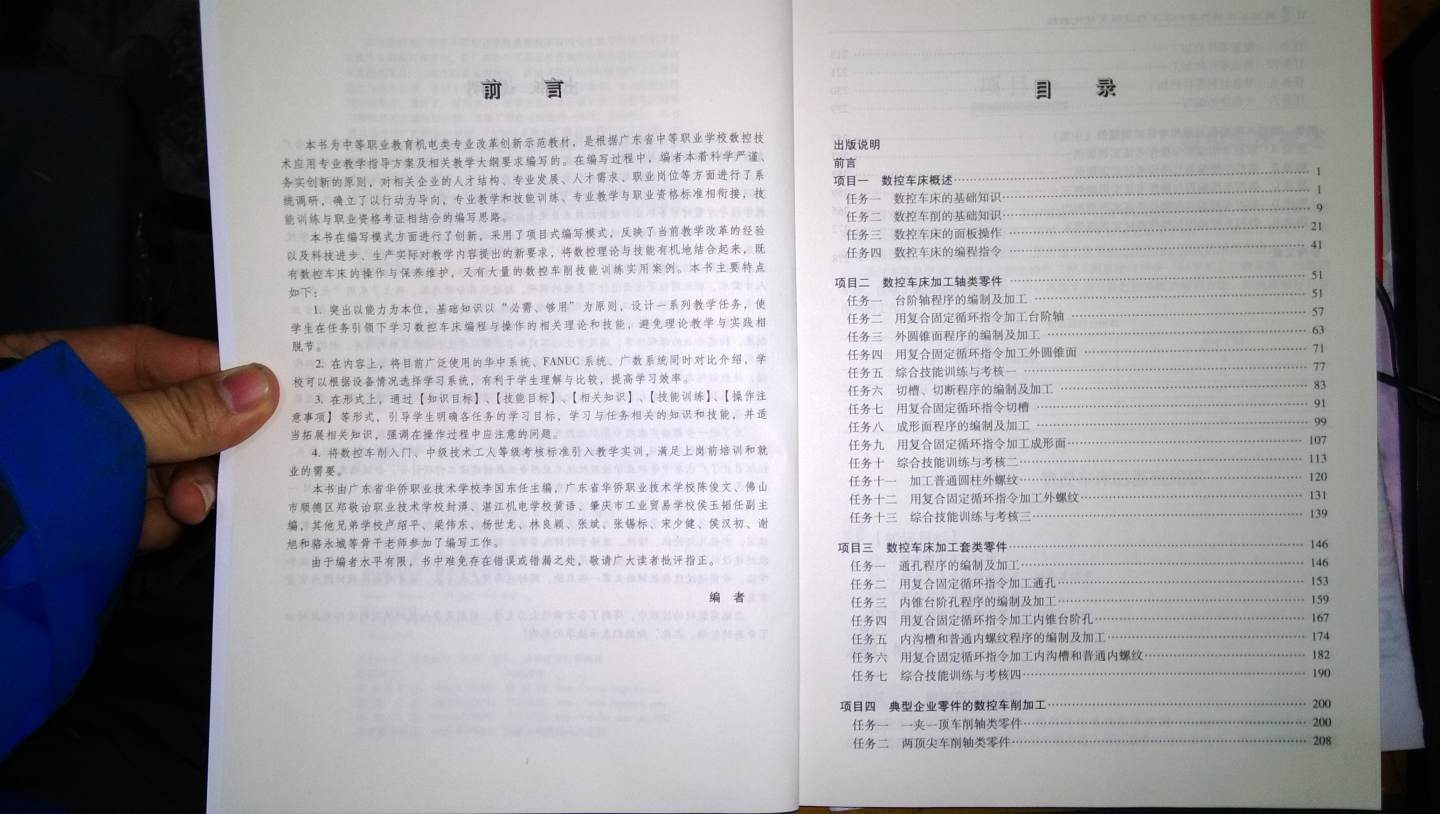 前 言
本书为中等职业教育机电类专业改革创新示范教材，是根据广东省中等职业学校数控技
术应用专业教学指导方案及相关教学大纲要求编写的。在编写过程中，编者本着科学严谨、
务实创新的原则，对相关企业的人才结构、专业发展、人才需求、职业岗位等方面进行了系
统调研，确立了以行动为导向，专业教学和技能训练、专业教学与职业资格标准相衔接，技
能训练与职业资格考证相结合的编写思路。
本书在编写模式方面进行了创新，采用了项目式编写模式，反映了当前教学改革的经验
以及科技进步、生产实际对教学内容提出的新要求，将数控理论与技能有机地结合起来，既
有数控车床的操作与保养维护，又有大量的数控车削技能训练实用案例。本书主要特点
如下：
1. 突出以能力为本位，基础知识以“必需、够用”为原则，设计一系列教学任务，使
学生在任务引领下学习数控车床编程与操作的相关理论和技能，避免理论教学与实践相
脱节。
2. 在内容上，将目前广泛使用的华中系统、FANUC 系统、广数系统同时对比介绍，学
校可以根据设备情况选择学习系统，有利于学生理解与比较，提高学习效率。
3. 在形式上，通过【知识目标】、【技能目标】、【相关知识】、【技能训练】、【操作注
意事项】等形式，引导学生明确各任务的学习目标，学习与任务相关的知识和技能，并适
当拓展相关知识，强调在操作过程中应注意的问题。
4. 将数控车削入门、中级技术工人等级考核标准引入教学实训，满足上岗前培训和就
业的需要。
本书由广东省华侨职业技术学校李国东任主编，广东省华侨职业技术学校陈俊文、佛山
市顺德区郑敬诒职业技术学校封溥、湛江机电学校黄语、肇庆市工业贸易学校侯玉韬任副主
编，其他兄弟学校卢绍平、梁伟东、杨世龙、林良颖、张斌、张锡标、宋少健、侯汉初、谢
旭和骆永城等骨干老师参加了编写工作。
由于编者水平有限，书中难免存在错误或错漏之处，敬请广大读者批评指正。
编 者
目 录
出版说明
前言
项目一 数控车床概述……1
任务一 数控车床的基础知识……1
任务二 数控车削的基础知识……9
任务三 数控车床的面板操作……21
任务四 数控车床的编程指令……41
项目二 数控车床加工轴类零件……51
任务一 台阶轴程序的编制及加工……51
任务二 用复合固定循环指令加工台阶轴……57
任务三 外圆锥面程序的编制及加工……63
任务四 用复合固定循环指令加工外圆锥面……71
任务五 综合技能训练与考核一……77
任务六 切槽、切断程序的编制及加工……83
任务七 用复合固定循环指令切槽……91
任务八 成形面程序的编制及加工……99
任务九 用复合固定循环指令加工成形面……107
任务十 综合技能训练与考核二……113
任务十一 加工普通圆柱外螺纹……120
任务十二 用复合固定循环指令加工外螺纹……131
任务十三 综合技能训练与考核三……139
项目三 数控车床加工套类零件……146
任务一 通孔程序的编制及加工……146
任务二 用复合固定循环指令加工通孔……153
任务三 内锥台阶孔程序的编制及加工……159
任务四 用复合固定循环指令加工内锥台阶孔……167
任务五 内沟槽和普通内螺纹程序的编制及加工……174
任务六 用复合固定循环指令加工内沟槽和普通内螺纹……182
任务七 综合技能训练与考核四……190
项目四 典型企业零件的数控车削加工……200
任务一 一夹一顶车削轴类零件……200
任务二 两顶尖车削轴类零件……208